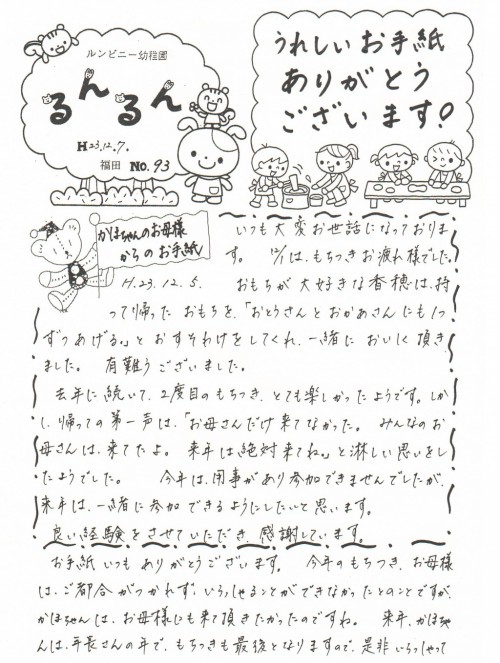 ルンビニー幼稚園
るんるん
H23.12.7.
福田 No.93
うれしいお手紙
ありがとう
ございます!
かほちゃんのお母様
からのお手紙
いつも大変お世話になっておりま
す。 は、もちつきお疲れ様でした。
H.23.12.5. おもちが大好きな香穂は、持
って帰ったおもちを、「おとうさんとおかあさんにも1つ
ずつあげる。」とおすそわけをしてくれ、一緒においしく頂き
ました。 有難うございました。
去年に続いて、2度目のもちつき、とても楽しかったようです。しか
し、帰っての第一声は、「お母さんだけ来てなかった。 みんなのお
母さんは、来てたよ。 来年は絶対来てね。」と淋しい思いをし
たようでした。 今年は、用事があり参加できませんでしたが、
来年は、一緒に参加できるようにしたいと思います。
良い経験をさせていただき、感謝しています。
お手紙いつもありがとうございます。 今年のもちつき、お母様
は、ご都合がつかれず、いらっしゃることができなかったとのことですが、
かほちゃんは、お母様にも来て頂きたかったのですね。 来年、かほちゃ
んは、年長さんの年で、もちつきも最後となりますので、是非いらっしゃって